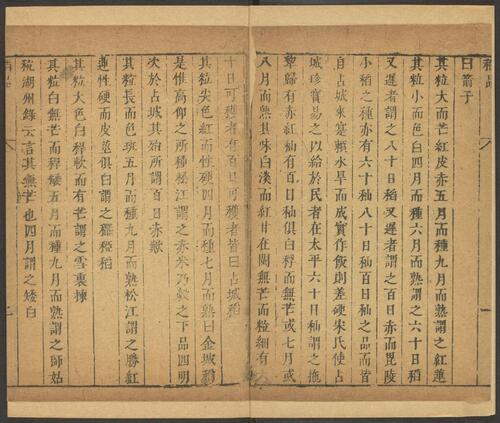 稻品
曰箭子
其粒大而芒紅皮赤五月而種九月而熟謂之紅蓮
其粒小而色白四月而種六月而熟謂之六十日稻
又遲者謂之八十日稻又遲者謂之百日赤而毘陵
小稻之種亦有六十秈八十日秈百日秈之品而皆
自占城來寔頼水旱而成實作飯則差硬宋氏使占
城珍寶易之以給於民者在太平六十日秈謂之拖
犂歸有赤紅秈有百日秈俱白稃而無芒或七月或
八月而熟其味白淡而紅甘在閩無芒而粒細有
十日可穫者有百日可穫者皆曰占城稻
其粒尖色紅而性硬四月而種七月而熟曰金城稻
是惟高仰之所種松江謂之赤米乃穀之下品四明
次於占城其殆所謂百日赤歟
其粒長而色斑五月而種九月而熟松江謂之勝紅
蓮性硬而皮莖俱白謂之䆉稏稻
其粒大色白稈軟而有芒謂之雪裏揀
其粒白無芒而稈矮五月而種九月而熟謂之師姑
秔湖州錄云言其無芒也四月謂之矮白